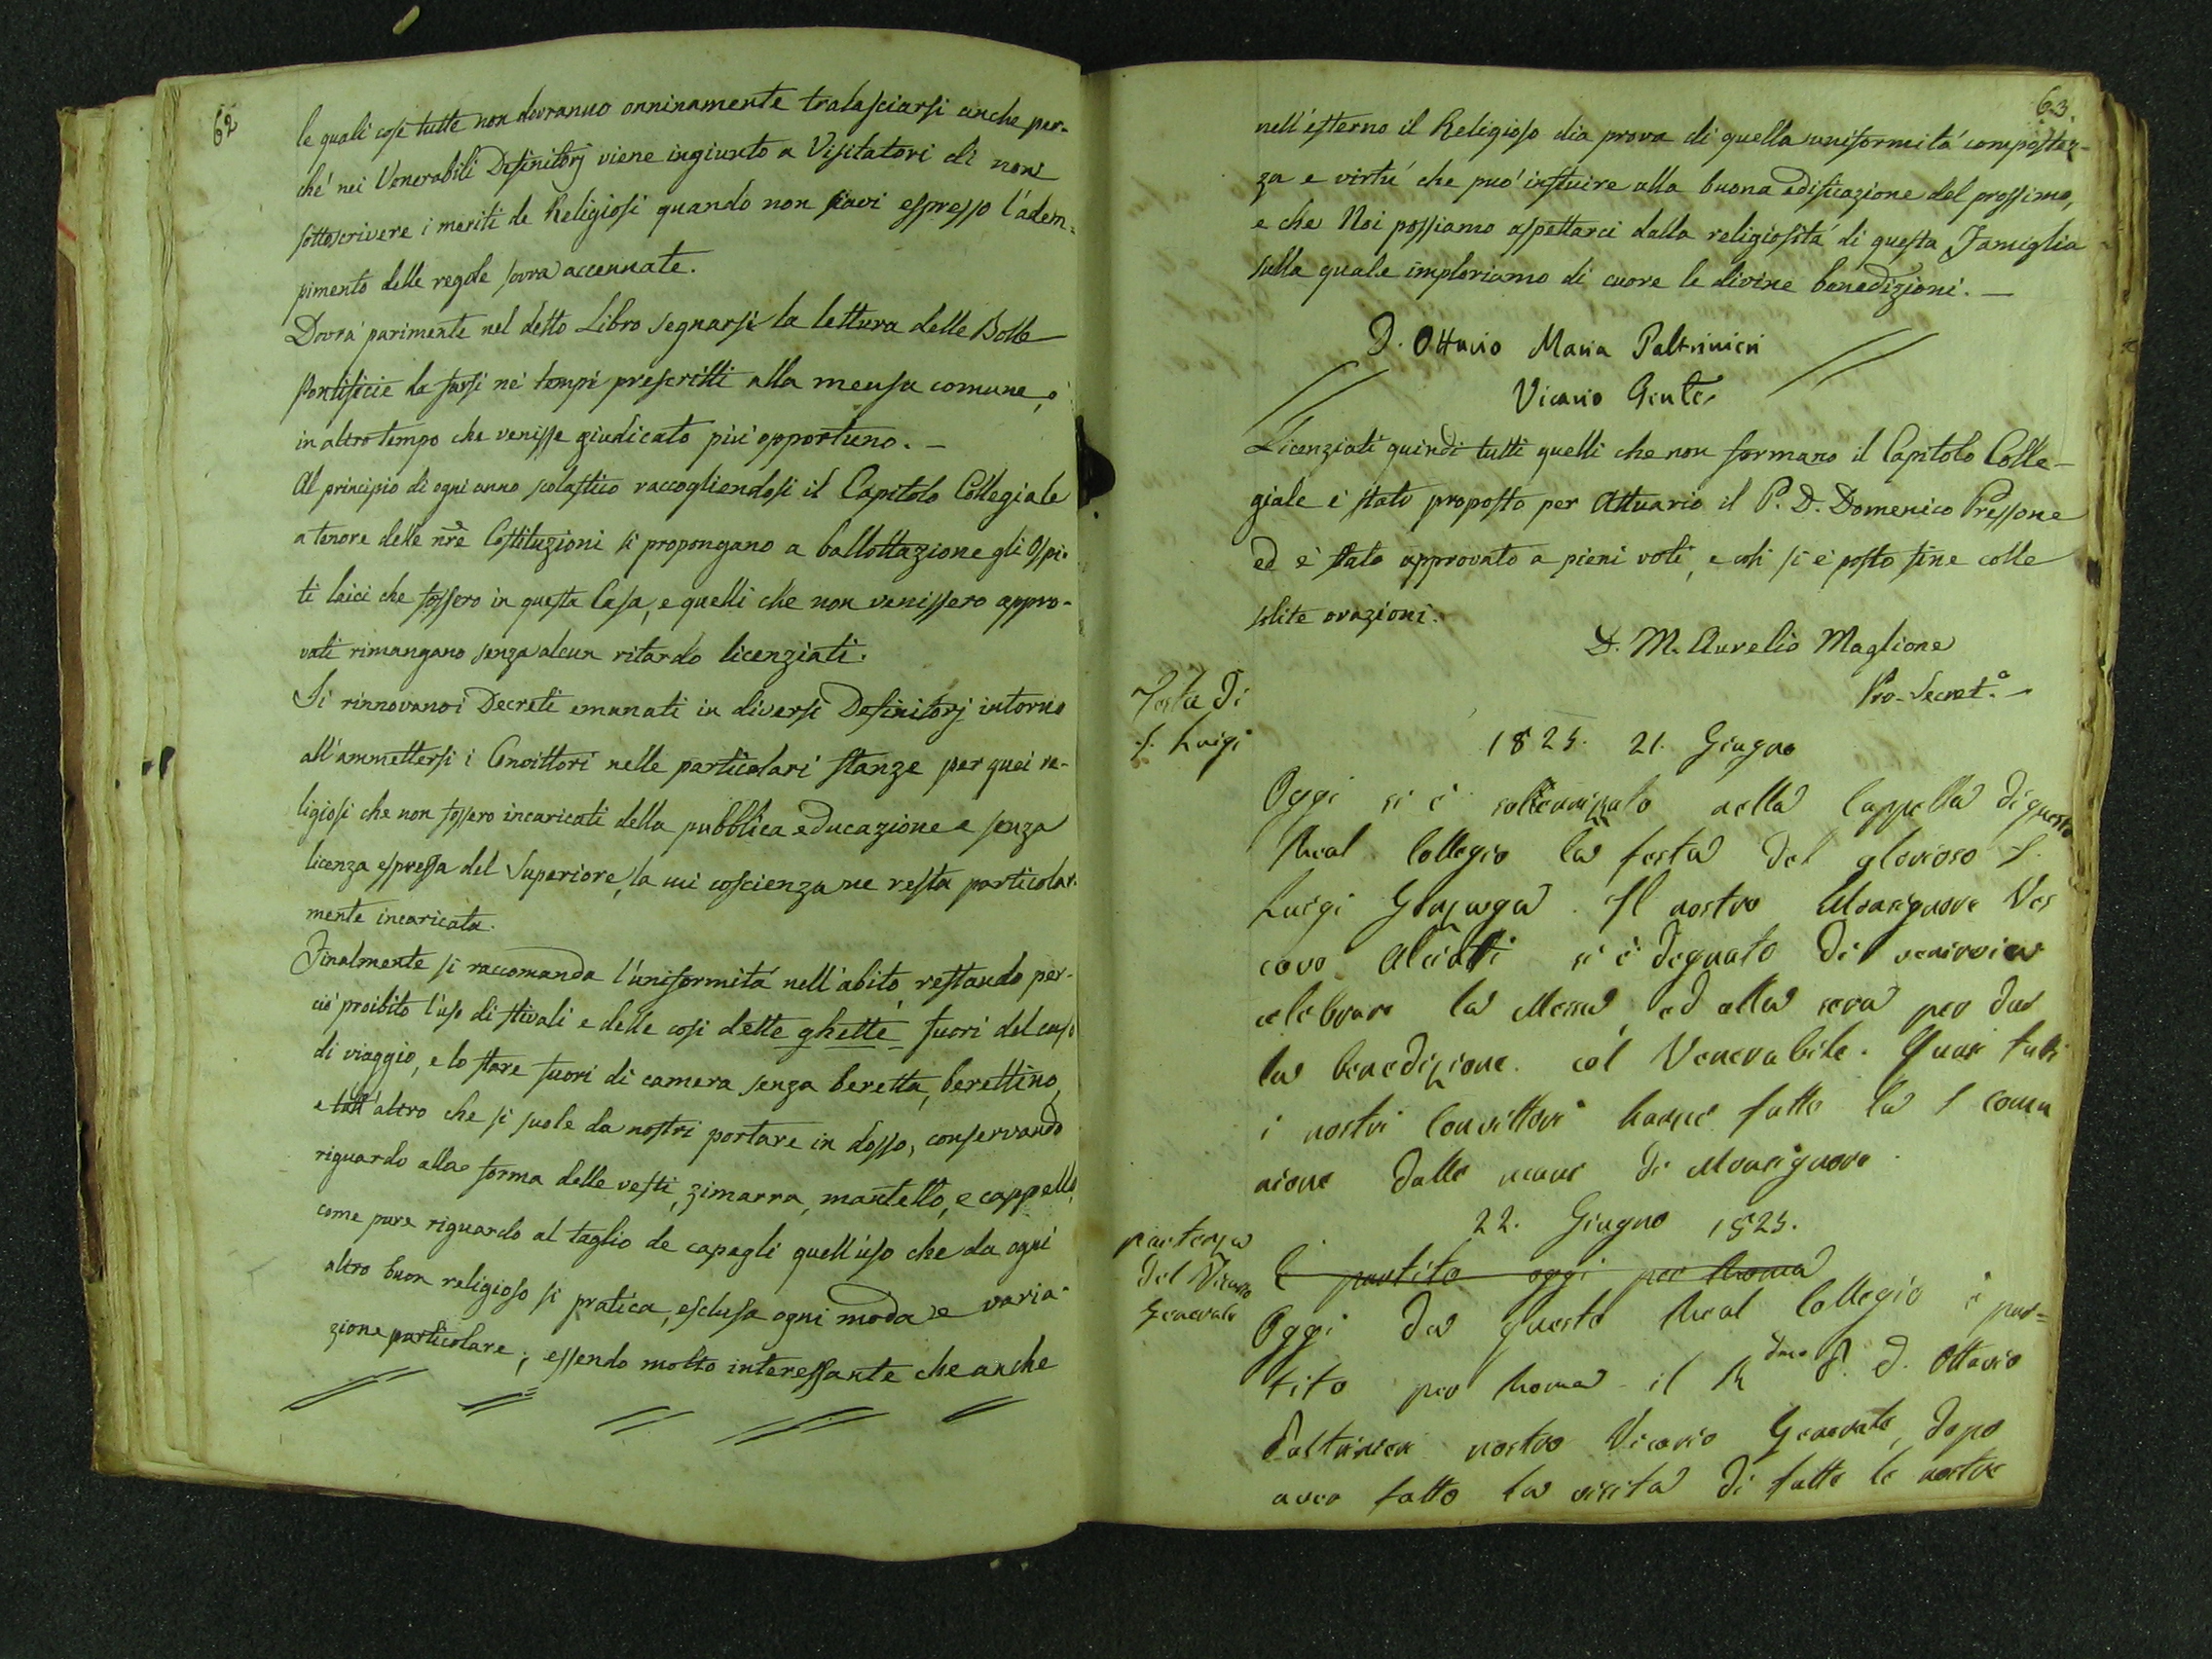 62
le quali cose tutte non dovranno onninamente tralasciarsi anche per-
ché nei Venerabili Definitorj viene ingiunto a Visitatori di non
sottoscrivere i meriti de Religiosi quando non siavi espresso l'adem-
pimento delle regole sovra accennate.
Dovrà parimente nel detto Libro segnarsi la lettura delle Bolle
Pontificie da farsi nei tempi prescritti alla mensa comune, o
in altro tempo che venisse giudicato più opportuno. —
Al principio di ogni anno scolastico raccogliendosi il Capitolo Collegiale
a tenore delle nr̃e Costituzioni si propongano a ballottazione gli Ospi-
ti laici che fossero in questa Casa, e quelli che non venissero appro-
vati rimangano senza alcun ritardo licenziati.
Si rinnovano i Decreti emanati in diversi Definitorj intorno
all'ammettersi i Convittori nelle particolari stanze per quei re-
ligiosi che non fossero incaricati della pubblica educazione e senza
licenza espressa del Superiore, la cui coscienza ne resta particolar-
mente incaricata.
Finalmente si raccomanda l'uniformità nell'abito, restando per-
ciò proibito l'uso di stivali e delle così dette ghette fuori del caso
di viaggio, e lo stare fuori di camera senza beretta, berettino,
e tutt'altro che si suole da nostri portare in dosso, conservando
riguardo alla forma delle vesti, zimarra, mantello, e cappello,
come pure riguardo al taglio de capegli quell'uso che da ogni
altro buon religioso si pratica, esclusa ogni moda e varia-
zione particolare; essendo molto interessante che anche
63.
nell'esterno il Religioso dia prova di quella uniformità compostez-
za e virtù che può influire alla buona edificazione del prossimo,
e che Noi possiamo aspettarci dalla religiosità di questa Famiglia
sulla quale imploriamo di cuore le divine benedizioni. —
D. Ottavio Maria Paltrinieri
Vicario Gñle
Licenziati quindi tutti quelli che non formano il Capitolo Colle-
giale è stato proposto per Attuario il P. D. Domenico Pressone
ed è stato approvato a pieni voti, e così si è posto fine colle
solite orazioni.
D. M. Aurelio Maglione
Pro-Secret.º —
Festa di
S. Luigi
1825. 21. Giugno
Oggi si è sollennizzato nella Cappella di questo
Real Collegio la festa del glorioso S.
Luigi Gonzaga. Il nostro Monsignore Ves
covo Alciati si è degnato di venirvi a
celebrare la Messa, ed alla sera per dar
la benedizione col Venerabile. Quasi tutti
i nostri Convittori hanno fatto la S comu
nione dalle mani di Monsignore.
22. Giugno 1825.
partenza
del Vicario
Generale
È partito oggi per Roma
Oggi da questo Real Collegio è par=
tito per Roma il Rdmo P. D. Ottavio
Paltrinieri nostro Vicario Generale, dopo
aver fatto la visita di tutte le nostre